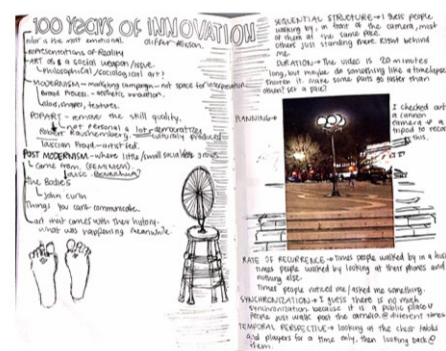 100 YEARS OF INNOVATION
color is the most emotional.
Representations of Reality
ART as a social weapon/issue.
Philosophical/sociological art?
MODERNISM - marketing campaign - not space for interpretation
Broad process - aesthetic innovation.
also, shapes, textures.
POPART - remove the skill quality.
not personal a lot - democratizes
Robert Rauschemberg. culturally produced
Luccian Froyd - artified.
POST MODERNISM - where little/small socialists grows
came from.
the Bodies
John
Things you cant communicate.
art that comes with their history.
what was happening meanwhile.
SEQUENTIAL STRUCTURE → I see people
walking by, in front of the camera, most
of them at the same pace.
Others just standing there right behind
me.
DURATION → The video is 20 minutes
long, but maybe do something like a timelapse
there in it. Make some parts go faster than
others? set a pace?
PLANNING →
I checked out
a cannon
camera & a
tripod to record
this.
RATE OF RECURRENCE → times people walked by in a
times people walked by looking at their phones and
nothing else.
Times people noticed me/asked me something.
SYNCHRONIZATION → I guess there is no much
synchronization because it is a public place &
People just walk past the camera @ different times
TEMPORAL PERSPECTIVE → looking at the chess tables
and players for a time only, then looking back @
them.